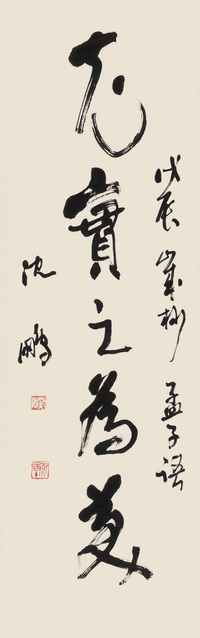 充實之為美
戊辰歲杪 孟子語
沈鵬